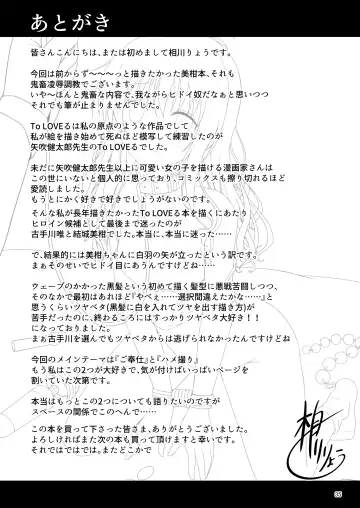 あとがき
皆さんこんにちは、または初めまして相川りょうです。
今回は前からず〜〜〜っと描きたかった美柑本、それも
鬼畜凌辱調教でございます。
いや〜ほんと鬼畜な内容で、我ながらヒドイ奴だなぁと思いつつ
それでも筆が止まりませんでした。
To LOVEるは私の原点のような作品でして
私が絵を描き始めて死ぬほど模写して練習したのが
矢吹健太郎先生のTo LOVEるでした。
未だに矢吹健太郎先生以上に可愛い女の子を描ける漫画家さんは
この世にいないと個人的に思っており、コミックスも擦り切れるほど
愛読しました。
もうとにかく好きで好きでしょうがないのです。
そんな私が長年描きたかったTo LOVEる本を描くにあたり
ヒロイン候補として最後まで迷ったのが
古手川唯と結城美柑でした。本当に、本当に迷った……
で、結果的には美柑ちゃんに白羽の矢が立ったという訳です。
まぁそのせいでヒドイ目にあうんですけどね……
ウェーブのかかった黒髪という初めて描く髪型に悪戦苦闘しつつ、
そのなかで最初はあれほど『やべぇ……選択間違えたかな……』と
思うくらいツヤベタ(黒髪に白を入れてツヤを出す描き方)が
苦手だったのに、終わるころにはすっかりツヤベタ大好き！！
になっておりました。
まぁ古手川を選んでもツヤベタからは逃げられなかったんですけどね
今回のメインテーマは『ご奉仕』と『ハメ撮り』
もう私この2つが大好きで、気が付けばいっぱいページを
割いていた次第です。
本当はもっとこの2つについても語りたいのですが
スペースの関係でこのへんで……
この本を買って下さった皆さま、ありがとうございました。
よろしければまた次の本も買って頂けますと幸いです。
それではではでは。またどこかで
相川りょう
35